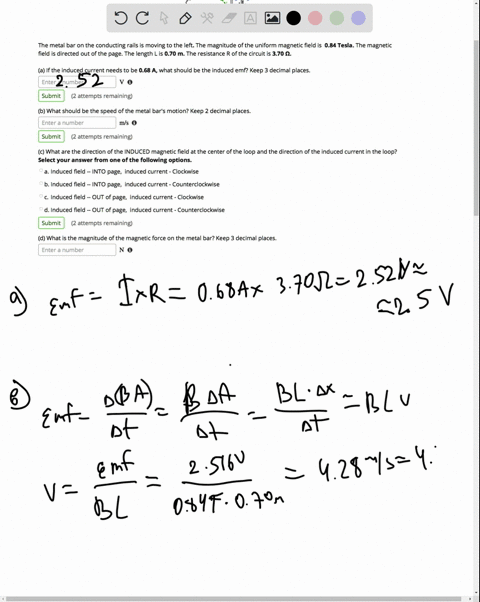 The metal bar on the conducting rails is moving to the left. The magnitude of the uniform magnetic field is 0.84 Tesla. The magnetic
field is directed out of the page. The length L is 0.70 m. The resistance R of the circuit is 3.70 Ω.
(a) If the induced current needs to be 0.68 A, what should be the induced emf? Keep 3 decimal places.
Enter a number 2.52 V
Submit (2 attempts remaining)
(b) What should be the speed of the metal bar's motion? Keep 2 decimal places.
Enter a number m/s
Submit (2 attempts remaining)
(c) What are the direction of the INDUCED magnetic field at the center of the loop and the direction of the induced current in the loop?
Select your answer from one of the following options.
a. Induced field -- INTO page, induced current - Clockwise
b. Induced field -- INTO page, induced current - Counterclockwise
c. Induced field -- OUT of page, induced current - Clockwise
d. Induced field -- OUT of page, induced current - Counterclockwise
Submit (2 attempts remaining)
(d) What is the magnitude of the magnetic force on the metal bar? Keep 3 decimal places.
Enter a number N
a) Emf = I×R = 0.68A× 3.70Ω = 2.52V ≈
≈2.5 V
B) Emf = Δ(BA)/Δt = BΔA/Δt = BL·Δx/Δt = BLV
V = Emf/BL = 2.516V/0.84T·0.70m = 4.28 m/s = 4.